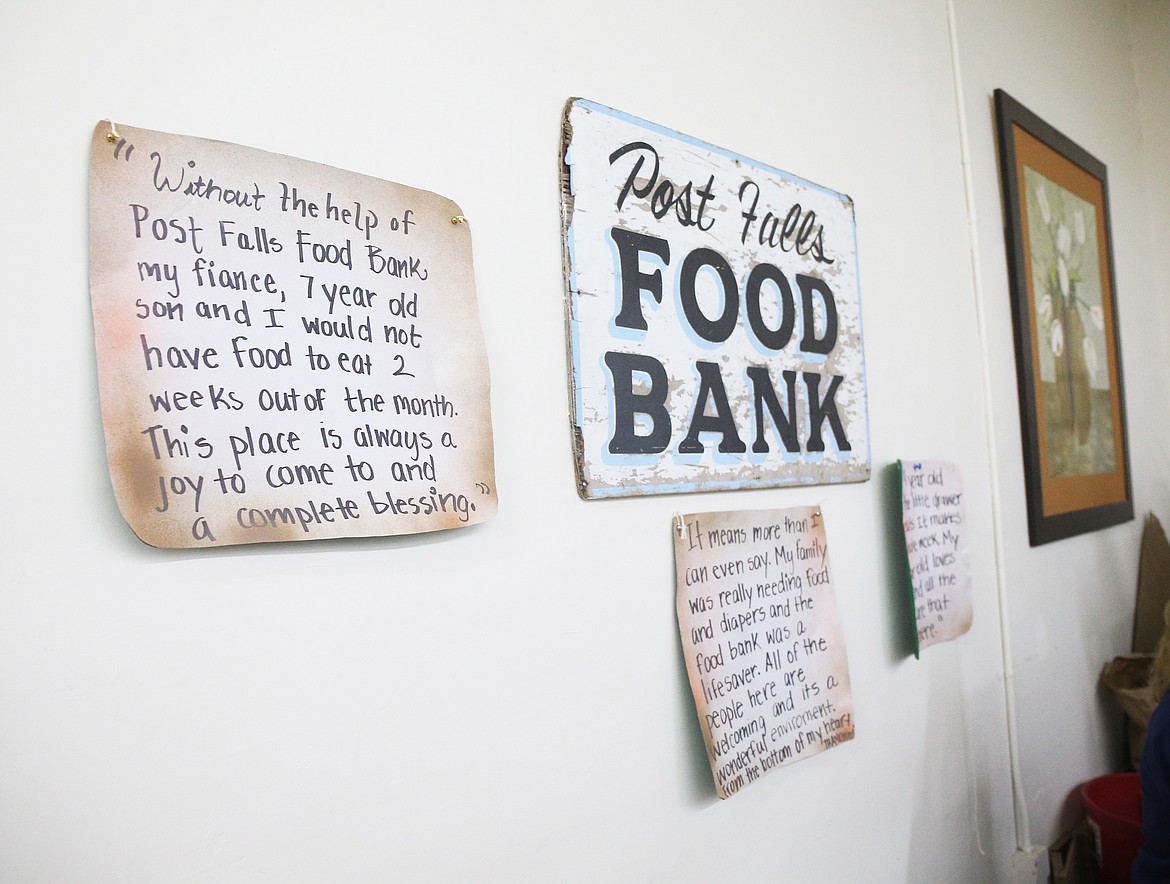 " Without the help of
Post Falls Food Bank,
my fiance, 7 year old
son and I would not
have food to eat 2
weeks out of the month.
This place is always a
joy to come to and
a complete blessing."
Post Falls
FOOD
BANK
It means more than I
can even say. My family
was really needing food
and diapers and the
food bank was a
lifesaver. All of the
people here are
welcoming and its a
wonderful enviroment.
from the bottom of my heart
year old
little
It makes
week. My
old loves
all the
that